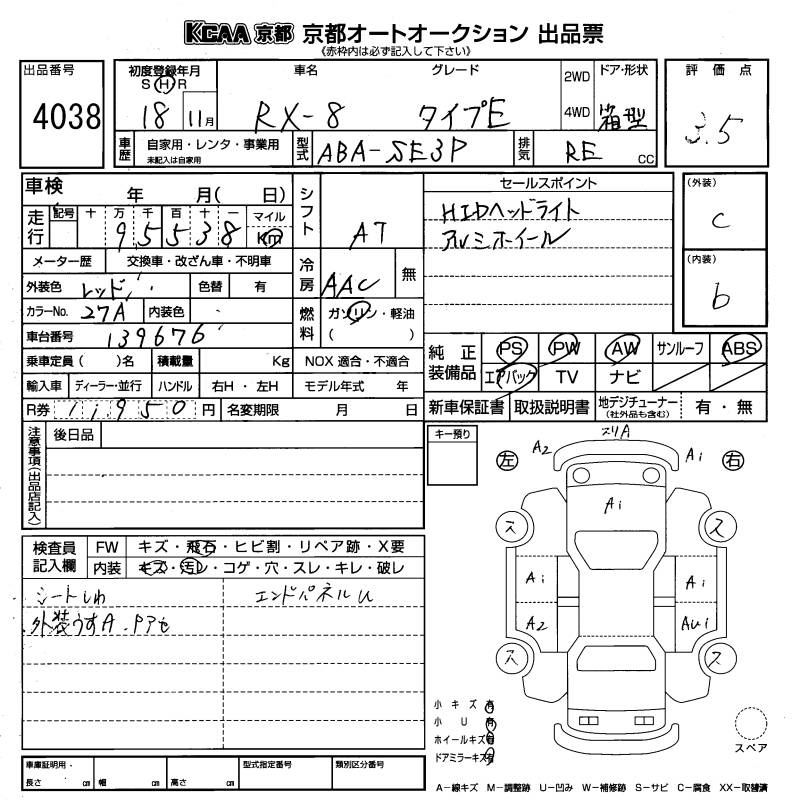 KCAA 京都 京都オートオークション 出品票
《赤枠内は必ず記入して下さい》
出品番号
4038
初度登録年月
S H R
18 11月
車名
RX-8
グレード
タイプE
2WD
4WD
ドア・形状
箱型
評価点
3.5
車歴
自家用・レンタ・事業用
未記入は自家用
型式
ABA-SE3P
排気
RE CC
車検 年 月( 日)
走行
記号 十 万 千 百 十 一 マイル
95538 Km
メーター歴 交換車・改ざん車・不明車
外装色 レッド 色替 有
カラーNo. 27A 内装色
車台番号 139676
乗車定員( )名 積載量 Kg
輸入車 ディーラー・並行 ハンドル 右H・左H
R券 11950 円 名変期限 月 日
シフト AT
冷房 AAC 無
燃料 ガソリン・軽油
( )
NOX 適合・不適合
モデル年式 年
セールスポイント
HIDヘッドライト
アルミホイール
(外装)
C
(内装)
b
純正装備品
PS PW AW サンルーフ ABS
エアバック TV ナビ
新車保証書 取扱説明書 地デジチューナー(社外品も含む) 有・無
注意事項(出品店記入)
後日品
キー預り
検査員記入欄
FW キズ・飛石・ヒビ割・リペア跡・X要
内装 キズ・汚レ・コゲ・穴・スレ・キレ・破レ
シートしわ
外装うすA.Pアセ
エンドパネルU
左 右
A2 スリA A1
A1
ス ス
A1 A1
A2 AU1
ス ス
小キズ有
小U有
ホイールキズ有
ドアミラーキズ有
スペア
車庫証明用・
長さ cm 幅 cm 高さ cm
型式指定番号
類別区分番号
A−線キズ M−調整跡 U−凹み W−補修跡 S−サビ C−腐食 XX−取替済